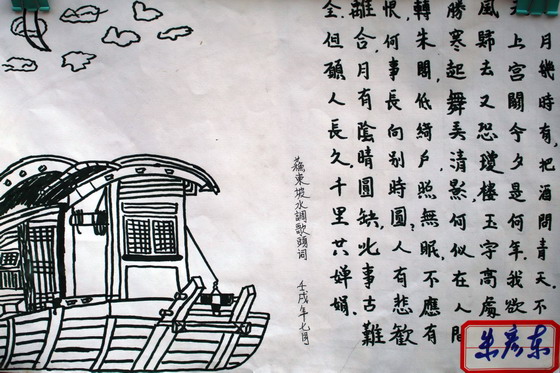 月幾時有.把酒問青天不
天上宮闕今夕是何年.我欲
風歸去又恐瓊樓玉宇高處
勝寒起舞弄清影何似在人間
轉朱閣低綺戶照無眠.不應有
恨何事長向别時圓.人有悲歡
離合月有陰晴圓缺此事古難
全.但願人長久千里共嬋娟.
蘇東坡水調歌頭词
壬戌年七月
朱彦东